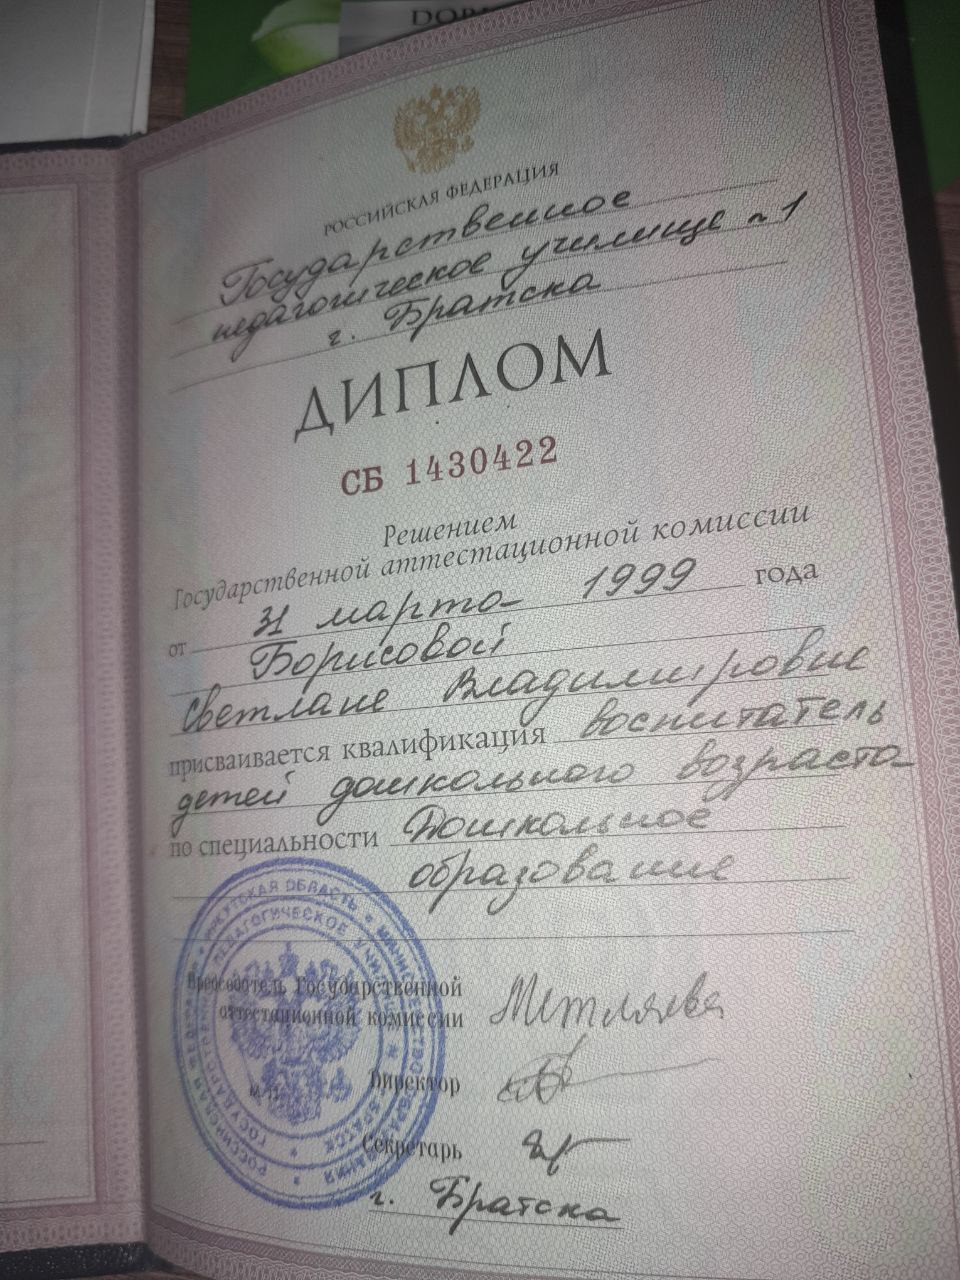 РОССИЙСКАЯ ФЕДЕРАЦИЯ
Государственное
педагогическое училище №1
г. Братска
ДИПЛОМ
СБ 1430422
Решением
Государственной аттестационной комиссии
от 31 марта 1999 года
Борисовой
Светлане Владимировне
присваивается квалификация воспитатель
детей дошкольного возраста
по специальности Дошкольное
образование
Председатель Государственной
аттестационной комиссии Метляева
М.П.
Директор
Секретарь
г. Братска
РОССИЙСКАЯ ФЕДЕРАЦИЯ * ИРКУТСКАЯ ОБЛАСТЬ * МИНИСТЕРСТВО ОБРАЗОВАНИЯ
ГОСУДАРСТВЕННОЕ ПЕДАГОГИЧЕСКОЕ УЧИЛИЩЕ